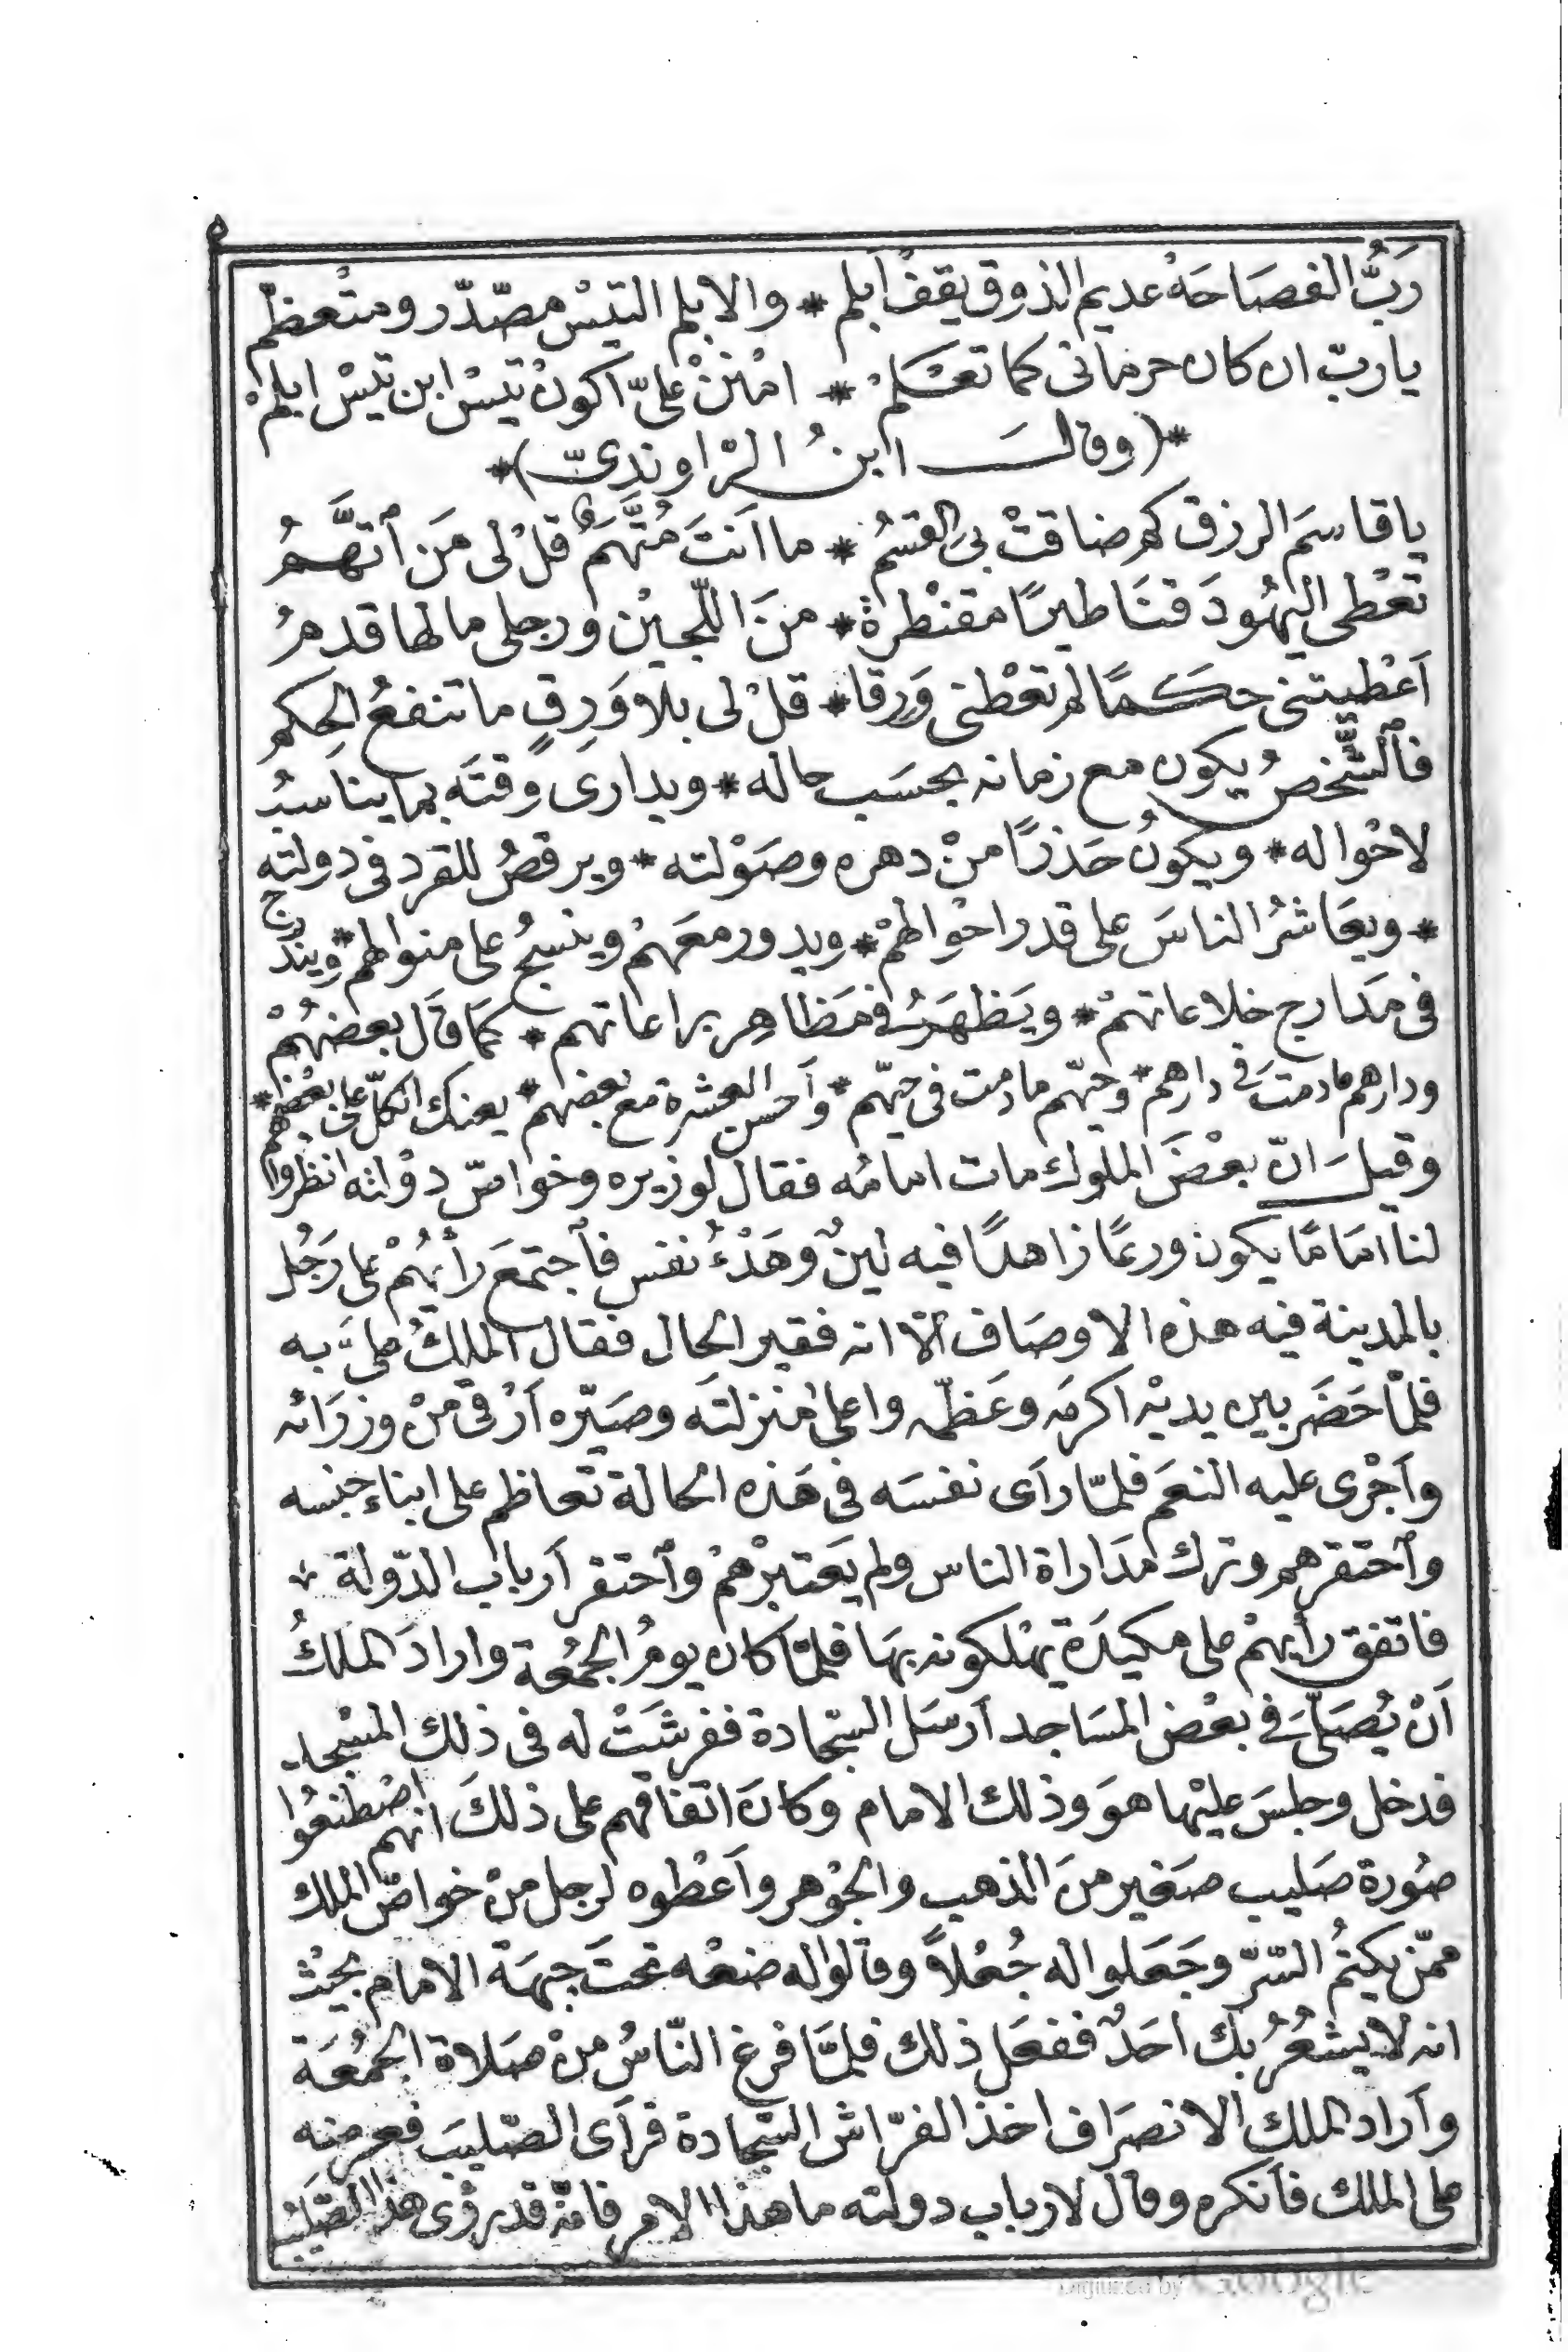 ٥
رَبُّ الفصَاحَهْ عديم الذوق يقفْ اَبلم * والابلم التيسْ مصّدّر ومتْعظّم
يا ربّ ان كان حرمانى كما تعْلمْ * امْننْ علىّ اكونْ تيسْ ابن تيسْ ابلمْ
*( وقالَ ابنُ الرّاوندِىّ )*
يا قاسمَ الرزق كم ضاقتْ بىَ القسمُ * ما اَنتَ مُتَّهَمٌ قلْ لى مَن أتهَّمُ
تعْطى اليهُودَ قنَاطيرًا مقنْطرةً * منَ اللّجيْن ورجلى ما لها قدمُ
اَعْطيتنى حكمًا لم تعْطنى وَرِقا * قلْ لى بلا وَرِقٍ ما تنفعُ الحِكم
فالشَّخصُ يكون مع زمانه بحسَب حاله * ويدارى وقتَه بما يناسبُ
لاحْواله * ويكونُ حَذرًا منْ دهره وصَوْلته * ويرقصُ للقرد فى دولته
* ويعَاشرُ الناسَ على قدر احْوالهمْ * ويدور معَهمْ وينسجُ على منوالهم * ويندرج
فى مَدَارج خلاعاتهمْ * ويَظهَرُ فى مَظاهِر براعاتهم * كمَا قَال بعضهُمْ
ودارهم ما دمتَ فى دارهم * وحيّهم ما دمت فى حيّهم * وأحسن العشرة مع بعضهم * يعنك الكلّ على بعضهم *
وقيلَ انّ بعْضَ الملوك مات امامُه فقال لوزيره وخواصّ دوْلته انظروا
لنا امَامًا يكون ورعًا زاهدًا فيه لينٌ وهَدْءُ نفس فأجتمعَ رأيهُمْ على رَجُل
بالمدينة فيه هذه الاوصَاف الّا انه فقير الحال فقال الملِكُ علىَّ به
فلمّا حَضَر بين يديْه اكرمَه وعَظّمه واعلى مْنزلتَه وصَيّره اَرْقى منْ وزرَائه
واَجْرى عليه النعَم فلمّا راَى نفسَه فى هَذه الحالة تعاظم على ابناءِ جنسه
وأحتقرهم وترك مدَاراة الناس ولم يَعتبرْهمْ وأحتقر اَرباب الدّولة *
فاتفق رأيهمْ على مكيدَة يهْلكونه بهَا فلمّا كان يومُ الجمُعة وارادَ الملكُ
اَنْ يُصَلّىَ فى بعْض المسَاجد اَرسَل السّجّادة ففرشَتْ له فى ذلك المسْجد
فدخل وجلسَ عليْها هوَ وذلك الامام وكانَ اتفاقهم على ذلكَ انهم اصْطنعُوا
صُورة صَليب صَغير منَ الذهب والجوْهر واَعْطوه لرجل منْ خواصّ الملك
ممّن يكتمُ السّرّ وجَعَلوا له جُعْلاً وقالوا له ضعْه تحتَ جبهَة الامام بحيْث
انه لا يشْعُرُ بك احَدٌ ففعَل ذلك فلمَّا فرغ النّاسُ منْ صَلاة الجمُعَة
واَراد الملك الانصرَاف اخذ الفرّاش السّجادة فرَاَى الصّليبَ فعرضه
على الملك فأنكره وقال لارباب دولته ما هذا الامر فانّه قد رؤى هذا الصّليبُ
Digitized by Google